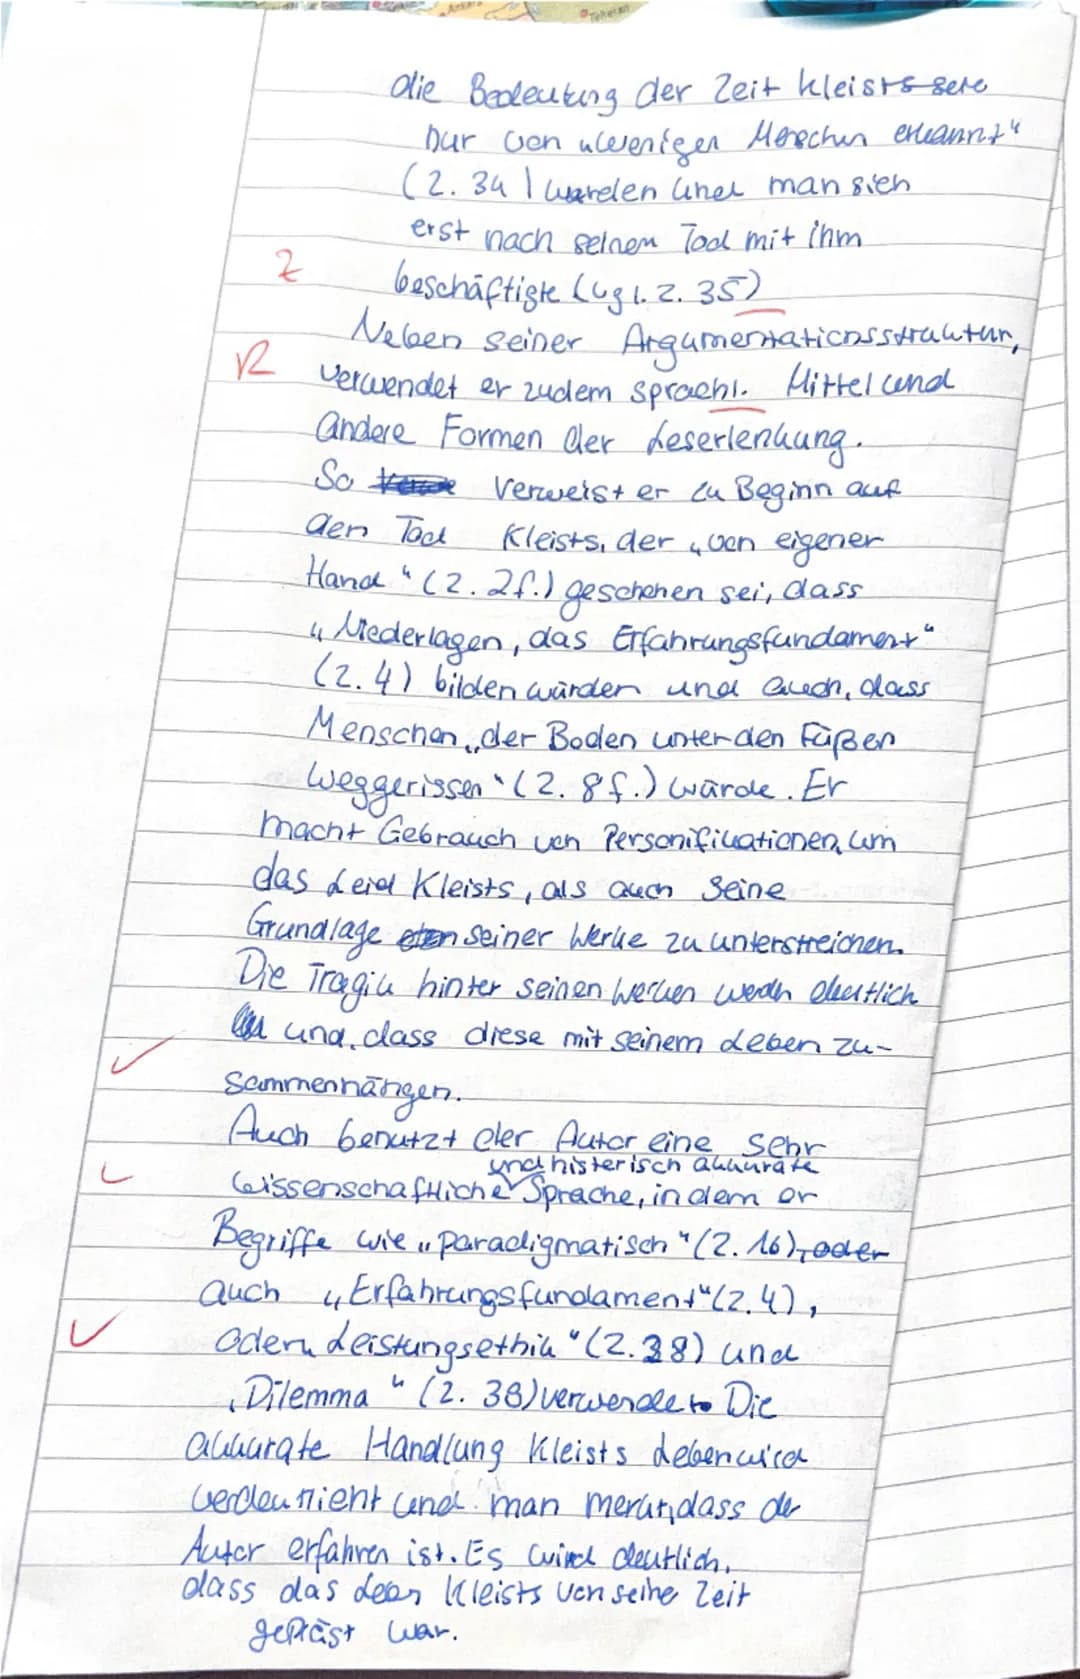 Teheran
die Bedeutung der Zeit Kleists sere
nur von „wenigen Menschen erkannt“
(Z. 34) werden und man sich
erst nach seinem Tod mit ihm
Z beschäftigte (vgl. Z. 35)
Neben seiner Argumentationsstruktur,
R verwendet er zudem sprachl. Mittel und
andere Formen der Leserlenkung.
So verweist er zu Beginn auf
den Tod Kleists, der „von eigener
Hand“ (Z. 2f.) geschehen sei, dass
„Niederlagen, das Erfahrungsfundament“
(Z. 4) bilden würden und auch, dass
Menschen „der Boden unter den Füßen
weggerissen“ (Z. 8f.) würde. Er
macht Gebrauch von Personifikationen, um
das Leid Kleists, als auch seine
Grundlage seiner Werke zu unterstreichen.
Die Tragik hinter seinen Werken werdn deutlich
und, dass diese mit seinem Leben zu-
sammenhängen.
Auch benutzt der Autor eine sehr
und historisch akkurate
wissenschaftliche Sprache, in dem er
Begriffe wie „paradigmatisch“ (Z. 16), oder
auch „Erfahrungsfundament“ (Z. 4),
oder „Leistungsethik“ (Z. 38) und
„Dilemma“ (Z. 38) verwendet. Die
akkurate Handlung Kleists Leben wird
verdeutlicht und man merkt, dass der
Autor erfahren ist. Es wird deutlich,
dass das Leben Kleists von seiner Zeit
geprägt war.